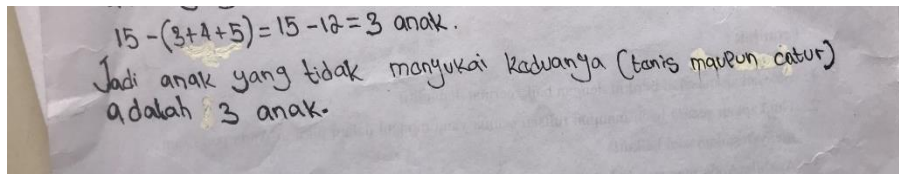 15 - (3+4+5) = 15 - 12 = 3 anak.
Jadi anak yang tidak menyukai keduanya (tenis maupun catur)
adalah 3 anak.